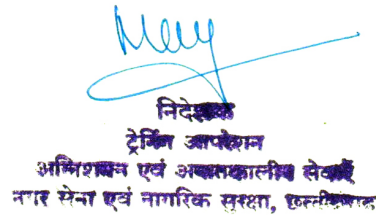 निदेशक
ट्रेनिंग आपरेशन
अग्निशमन एवं आपातकालीन सेवाएँ
नगर सेना एवं नागरिक सुरक्षा, छत्तीसगढ़